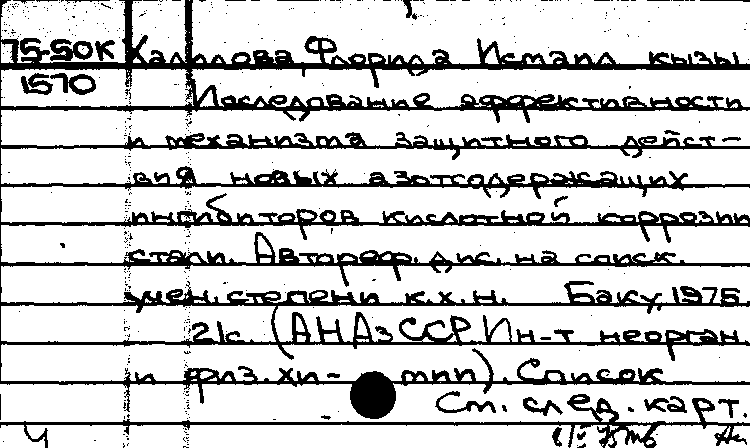 75-50К Халилова, Флорида Исмаил кызы
1570
Исследование эффективности
и механизма защитного дейст-
вия новых азотсодержащих
ингибиторов кислотной коррозии
стали. Автореф. дис. на соиск.
учен. степени к.х.н. Баку, 1975
21с. (АН АзССР. Ин-т неорган.
и физ. хи- мии). Список
См. след. карт.
Ч